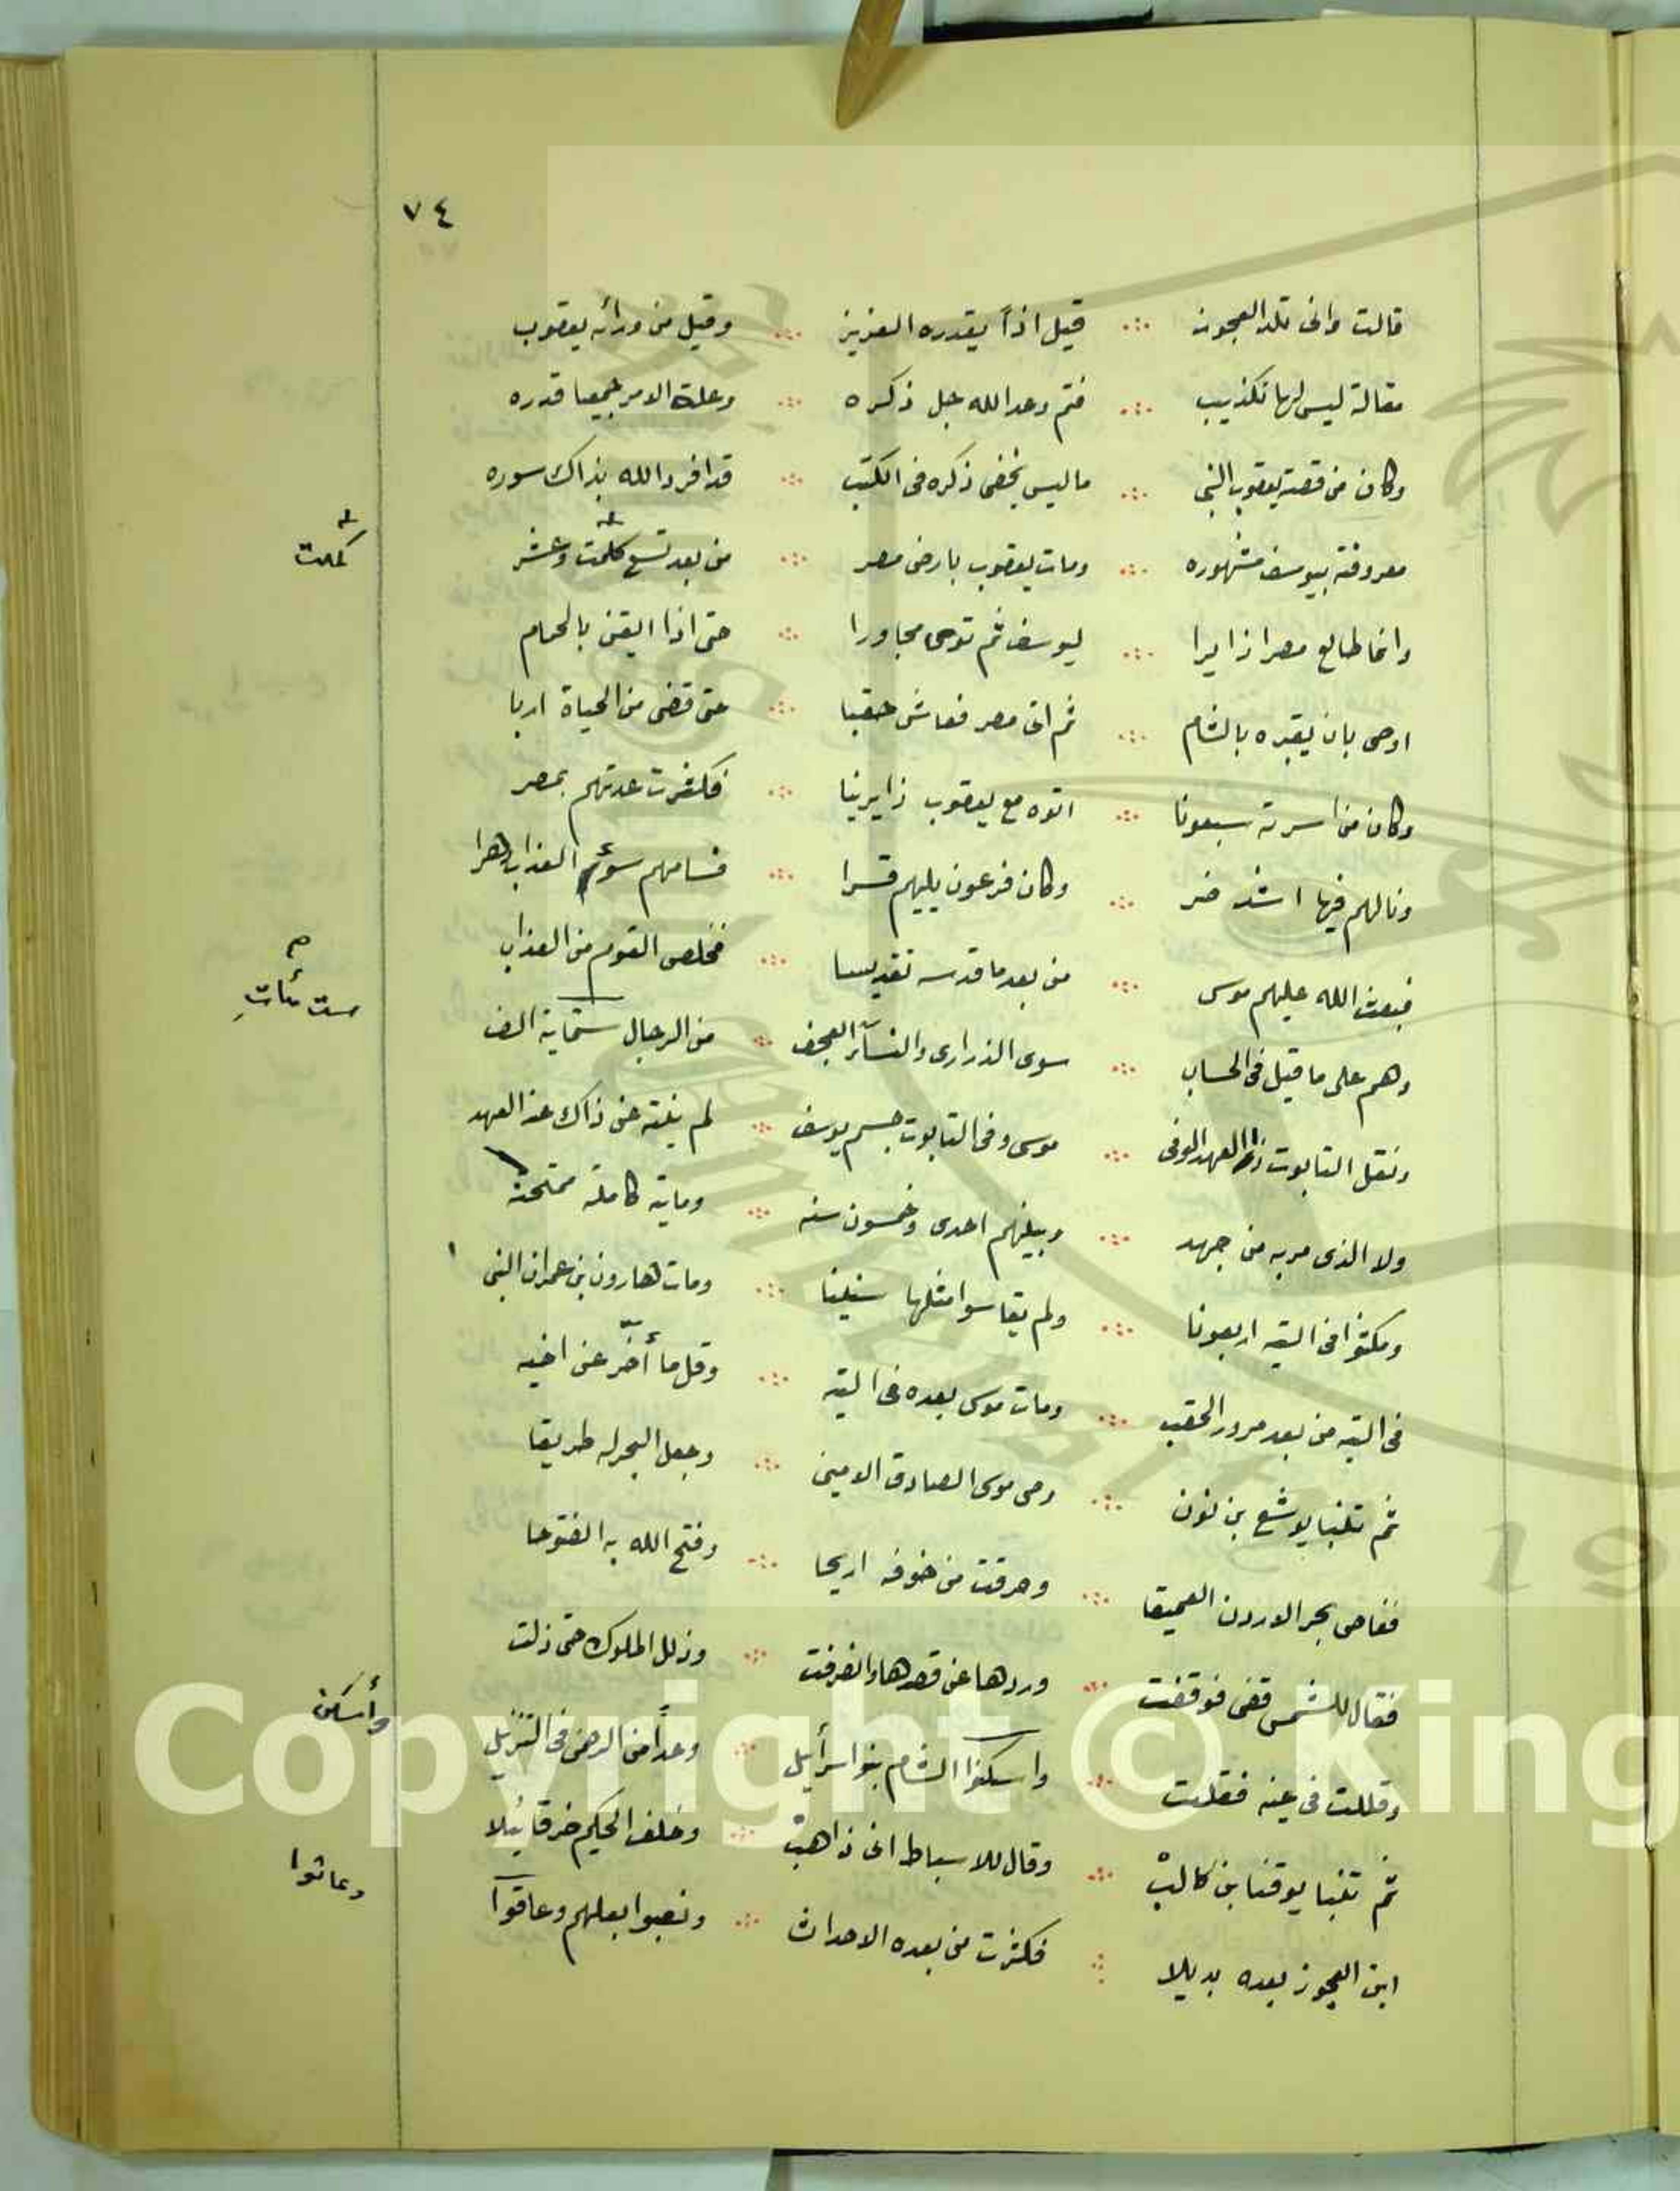 ٧٤
قالت وانى تلد العجوز ∴ قيل اذاً يقدره العزيز ∴ وقيل من ورائه يعقوب
مقالة ليس لها تكذيب ∴ فتم وعد الله جل ذكره ∴ وعلة الامر جميعا قدره
وكان من قصة يعقوب النبى ∴ ما ليس يخفى ذكره فى الكتب ∴ قد افرد الله بذاك سوره
معروفة بيوسف مشهوره ∴ ومات يعقوب بارض مصر ∴ من بعد تسع كلمت وعشر
كملت
وانما طالع مصرا زايرا ∴ ليوسف ثم توى مجاورا ∴ حتى اذا ايقن بالحمام
اوصى بان يقبره بالشام ∴ ثم اتى مصر فعاش حقبا ∴ حتى قضى من الحياة اربا
وكان من اسرته سبعونا ∴ اتوه مع يعقوب زايرينا ∴ فكثرت عدتهم بمصر
ونالهم فيها اشد ضر ∴ وكان فرعون يليهم قسرا ∴ فسامهم سوء العذاب دهرا
فبعث الله عليهم موسى ∴ من بعد ما قدسه تقديسا ∴ فخلص القوم من العذاب
وهم على ما قيل فى الحساب ∴ سوى الذرارى والنساء العجف ∴ من الرجال ستماية الف
ست مئات
ونقل التابوت ذا العهد الوفى ∴ موسى وفى التابوت جسم يوسف ∴ لم يثنه عن ذاك عند العهد
ولا الذى مر به من جهد ∴ وبينهم احدى وخمسون سنه ∴ وماية كاملة ممتحنة
ومكثوا فى التيه اربعونا ∴ ولم يقاسوا مثلها سنينا ∴ ومات هارون بن عمران النبى
فى التيه من بعد مرور الحقب ∴ ومات موسى بعده فى التيه ∴ وقل ما أخر عن اخيه
ثم تنبا يوشع بن نون ∴ وصى موسى الصادق الامين ∴ وجعل البحر له طريقا
ففاص بحر الاردن العميقا ∴ وحرقت من خوفه اريحا ∴ وفتح الله به الفتوحا
فقال للشمس قفى فوقفت ∴ وردها عن قصدها وانصرفت ∴ وذلل الملوك حتى ذلت
وقللت فى عينه فقلت ∴ واسكنوا الشام بنو اسرأيل ∴ وعداً من الرحمن فى التنزيل
وأسكن
ثم تنبا يوقنا بن كالب ∴ وقال للاسباط انى ذاهب ∴ وخلف الحكيم حزقائيلا
ابن العجوز بعده بديلا ∴ فكثرت من بعده الاحداث ∴ ونصبوا بعلهم وعاقوا
وعاثوا
Copyright © King
19